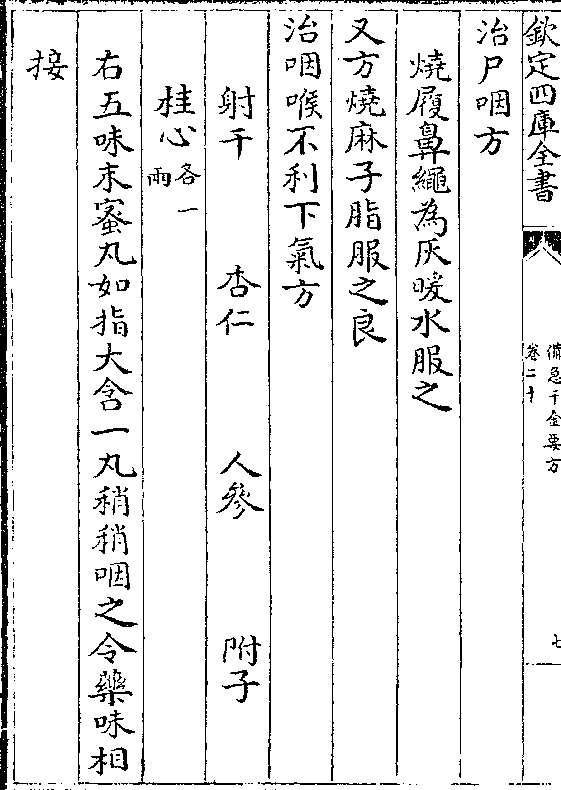 欽定四庫全書
備急千金要方
卷二十
七
治尸咽方
燒履鼻繩為灰暖水服之
又方燒麻子脂服之良
治咽喉不利下氣方
射干 杏仁 人參 附子
桂心各一兩
右五味末蜜丸如指大含一丸稍稍咽之令藥味相
接